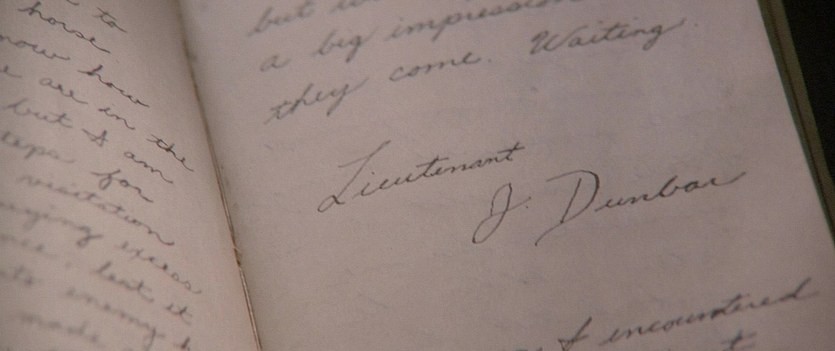 to
horse
now how
are in the
but I am
for
visitation
excess
but it
enemy
made
but
a big impression
they come. Waiting.
Lieutenant
J. Dunbar
I encountered